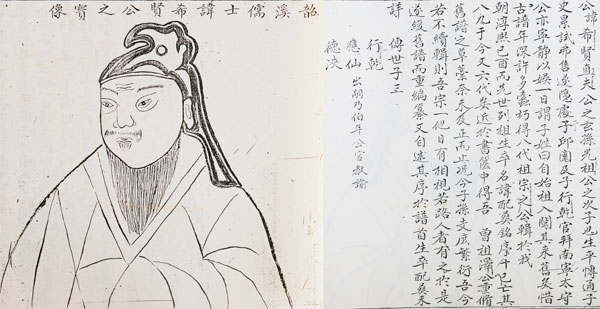 韶溪儒士諱希賢公之寶像
公諱希賢直夫公之玄孫先祖公之次子也生平博通子
史累試弗售遂隱處子邱園及子行乾官拜南寧太守
公亦寧靜以娛一日謂子姪曰自始祖入關其來舊矣惜
古譜年深許多蠹朽得八代祖宗之公輯於我
朝淳熙己酉而先世列祖生卒名諱配葬銘序十已亡其
八九于今又六代矣近於書篋中得吾 曾祖灝公重脩
舊譜之草藁奈未及正而止況今子孫支庶繁衍吾今
若不續輯則吾宗一他日有相視若路人者有之於是
遂緩舊譜而重編纂又自述其序於譜首生卒配葬未
詳 傳世子三
行乾
應仙 出嗣乃伯年公官教諭
德泱